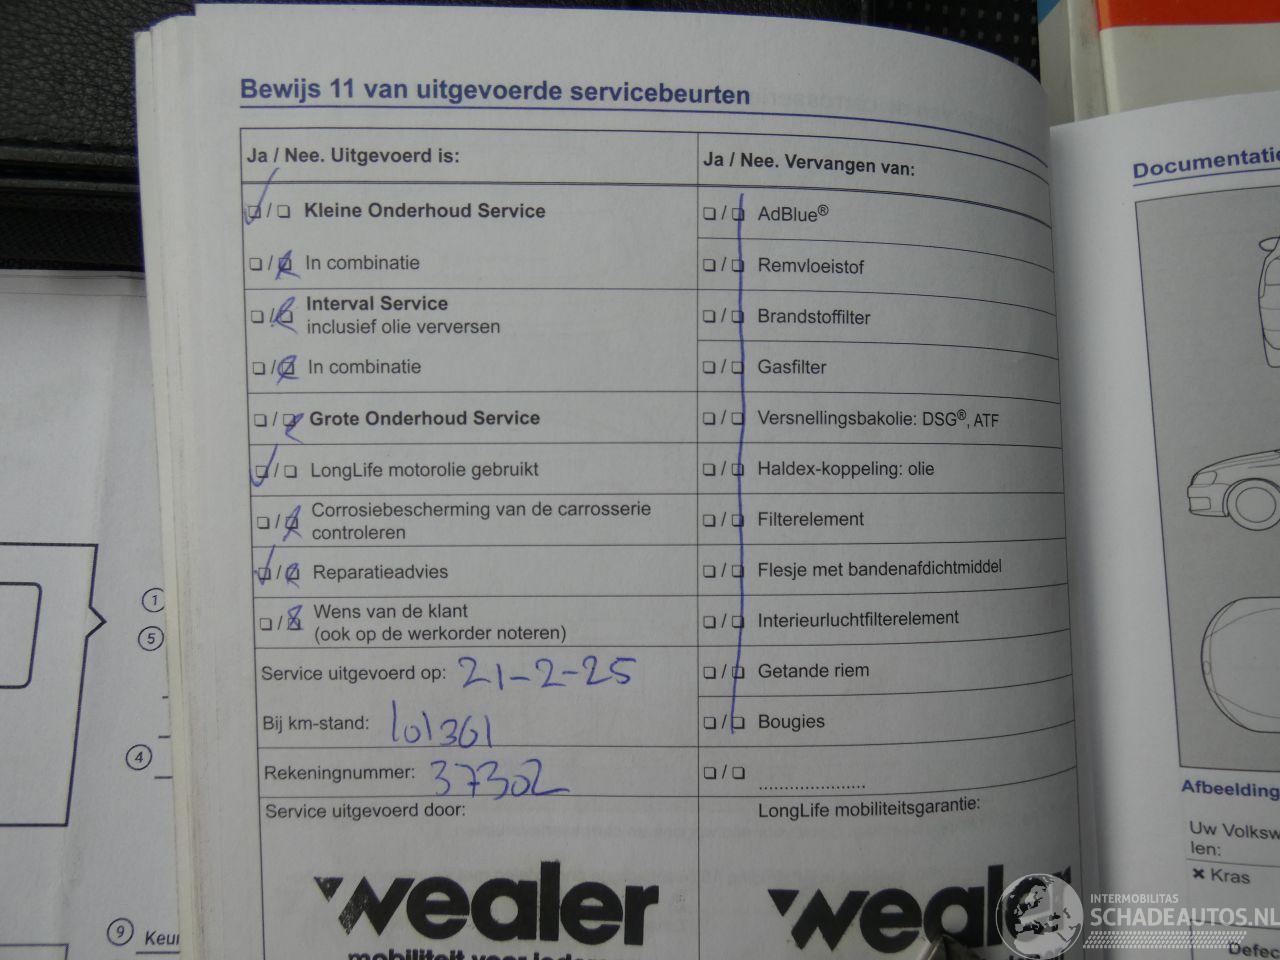 Bewijs 11 van uitgevoerde servicebeurten
Ja / Nee. Uitgevoerd is:
❏ / ❏ Kleine Onderhoud Service
❏ / ❏ In combinatie
❏ / ❏ Interval Service
inclusief olie verversen
❏ / ❏ In combinatie
❏ / ❏ Grote Onderhoud Service
❏ / ❏ LongLife motorolie gebruikt
❏ / ❏ Corrosiebescherming van de carrosserie
controleren
❏ / ❏ Reparatieadvies
❏ / ❏ Wens van de klant
(ook op de werkorder noteren)
Service uitgevoerd op: 21-2-25
Bij km-stand: 101361
Rekeningnummer: 37302
Service uitgevoerd door:
wealer
mobiliteit voor iedereen
Ja / Nee. Vervangen van:
❏ / ❏ AdBlue®
❏ / ❏ Remvloeistof
❏ / ❏ Brandstoffilter
❏ / ❏ Gasfilter
❏ / ❏ Versnellingsbakolie: DSG®, ATF
❏ / ❏ Haldex-koppeling: olie
❏ / ❏ Filterelement
❏ / ❏ Flesje met bandenafdichtmiddel
❏ / ❏ Interieurluchtfilterelement
❏ / ❏ Getande riem
❏ / ❏ Bougies
❏ / ❏ .....................
LongLife mobiliteitsgarantie:
weal
Documentatie
Afbeelding
Uw Volksw
len:
× Kras
Defec
1
5
4
9 Keur
INTERMOBILITAS
SCHADEAUTOS.NL